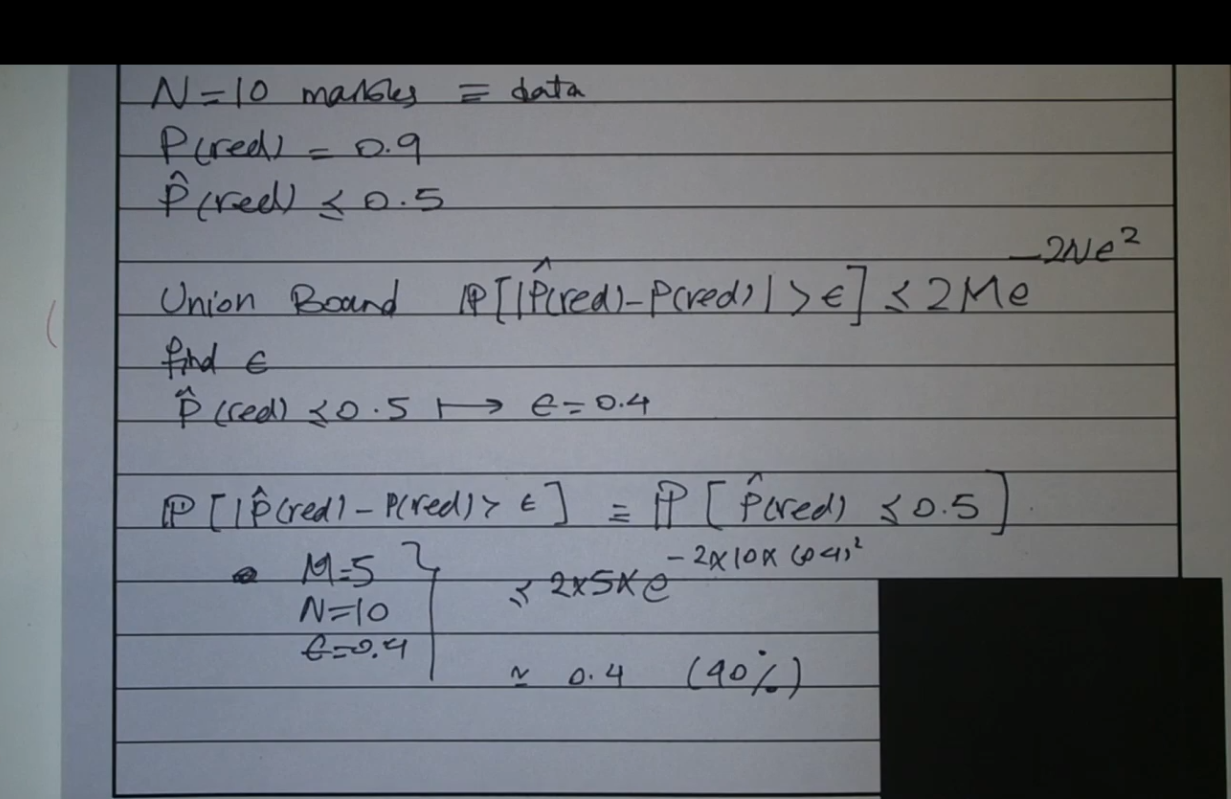 N=10 marbles ≡ data
P(red) = 0.9
P̂(red) ≤ 0.5
Union Bound ℙ[|P̂(red)-P(red)|>ϵ] ≤ 2Me^{-2Nϵ²}
find ϵ
P̂(red) ≤ 0.5 ↦ ϵ=0.4
ℙ[|P̂(red)-P(red)>ϵ] = ℙ[P̂(red) ≤ 0.5]
M=5
N=10
ϵ=0.4
≤ 2x5xe^{-2x10x(0.4)²}
≃ 0.4 (40%)